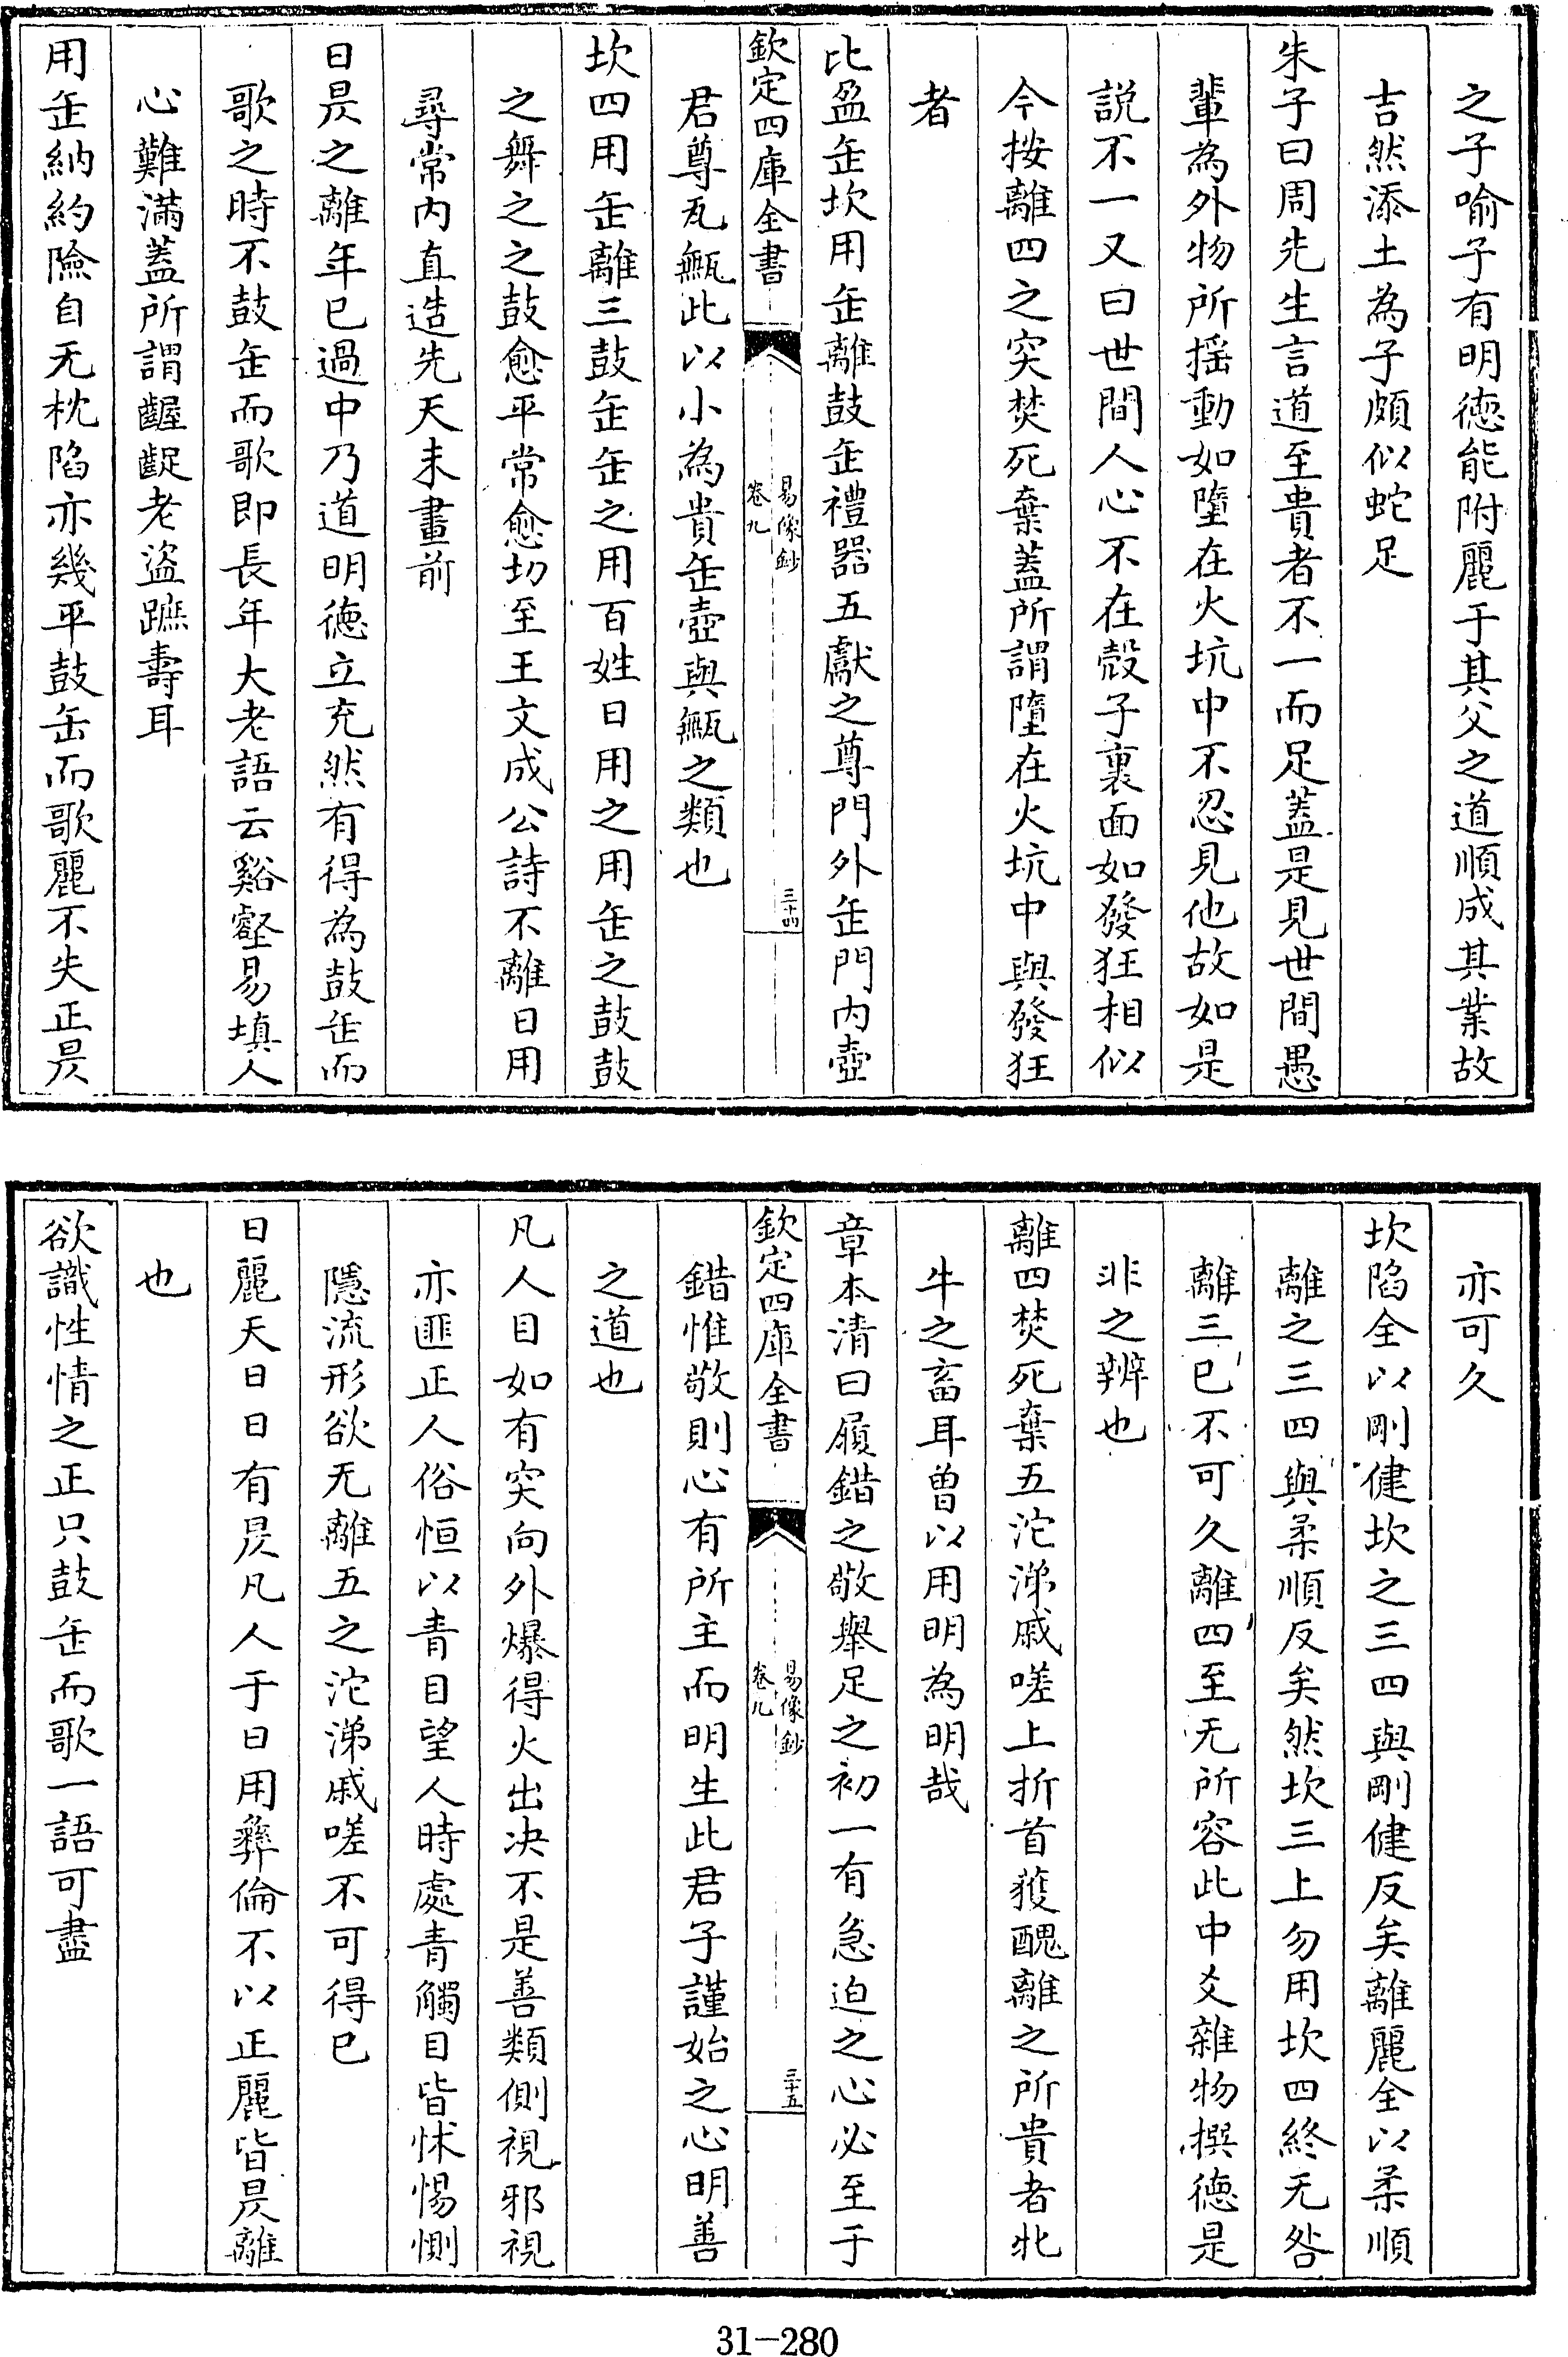 之子喻子有明徳能附麗于其父之道順成其業故
吉然添土為子頗似蛇足
朱子曰周先生言道至貴者不一而足蓋是見世間愚
輩為外物所揺動如墮在火坑中不忍見他故如是
説不一又曰世間人心不在殼子裏面如發狂相似
今按離四之突焚死棄蓋所謂墮在火坑中與發狂
者
比盈缶坎用缶離鼓缶禮器五獻之尊門外缶門内壺
欽定四庫全書
易像鈔
卷九
三十四
君尊瓦甒此以小為貴缶壺與甒之類也
坎四用缶離三鼓缶缶之用百姓日用之用缶之鼓鼓
之舞之之鼓愈平常愈切至王文成公詩不離日用
尋常内直造先天未畫前
日昃之離年已過中乃道明徳立充然有得為鼓缶而
歌之時不鼓缶而歌即長年大老語云谿壑易填人
心難滿蓋所謂齷齪老盜蹠壽耳
用缶納約險自无枕陷亦幾平鼓缶而歌麗不失正昃
亦可久
坎陷全以剛健坎之三四與剛健反矣離麗全以柔順
離之三四與柔順反矣然坎三上勿用坎四終无咎
離三已不可久離四至无所容此中爻雜物撰徳是
非之辨也
離四焚死棄五沱涕戚嗟上折首獲醜離之所貴者牝
牛之畜耳曽以用明為明哉
章本清曰履錯之敬舉足之初一有急迫之心必至于
欽定四庫全書
易像鈔
卷九
三十五
錯惟敬則心有所主而明生此君子謹始之心明善
之道也
凡人目如有突向外爆得火出决不是善類側視邪視
亦匪正人俗恒以青目望人時處青觸目皆怵惕惻
隱流形欲无離五之沱涕戚嗟不可得已
日麗天日日有昃凡人于日用彝倫不以正麗皆昃離
也
欲識性情之正只鼓缶而歌一語可盡
31-280